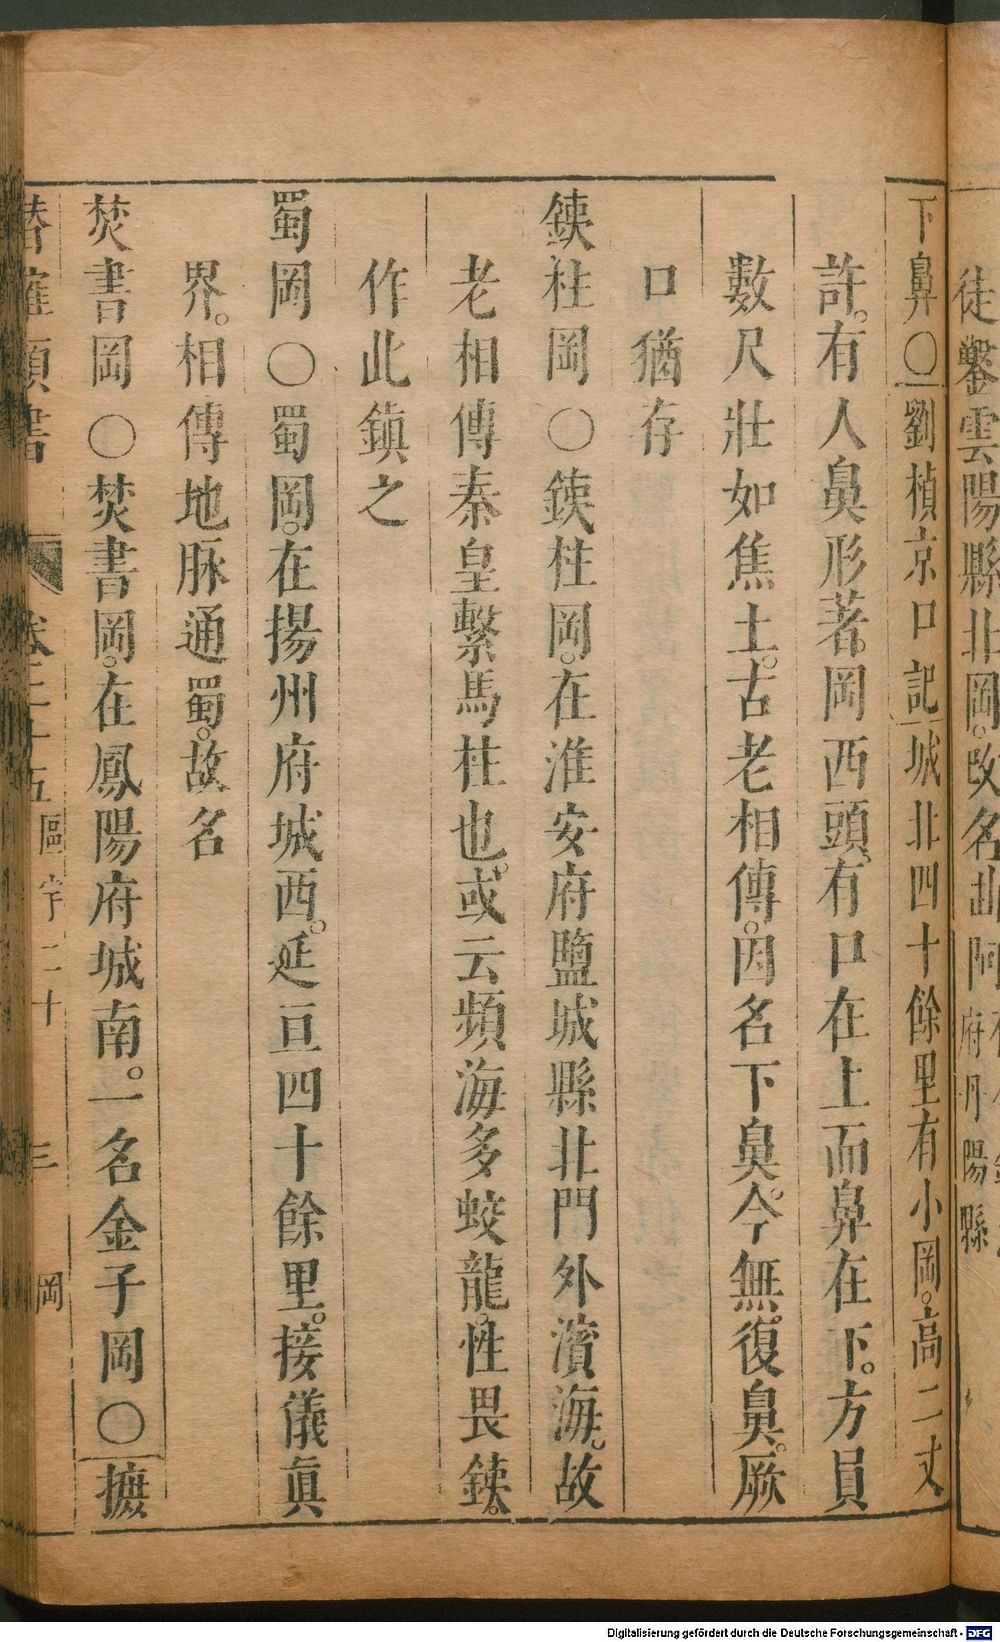 徒鑿雲陽縣北岡。改名曲阿
府丹陽縣
下鼻〇劉楨京口記城北四十餘里有小岡。高二丈
許。有人鼻形著。岡西頭。有口在上而鼻在下。方員
數尺壯如焦土。古老相傳。因名下鼻。今無。復鼻。厥
口猶存
鋏柱岡〇鋏柱岡。在淮安府鹽城縣北門外濱海。故
老相傳秦皇繫馬柱也。或云頻海多蛟龍。性畏鋏。
作此鎮之
蜀岡〇蜀岡。在揚州府城西。延亘四十餘里。接儀眞
界。相傳地脉通蜀。故名
焚書岡〇焚書岡。在鳳陽府城南。一名金子岡〇摭
類書
卷三十五
區宇二十
三
岡
Digitalisierung gefördert durch die Deutsche Forschungsgemeinschaft - DFG